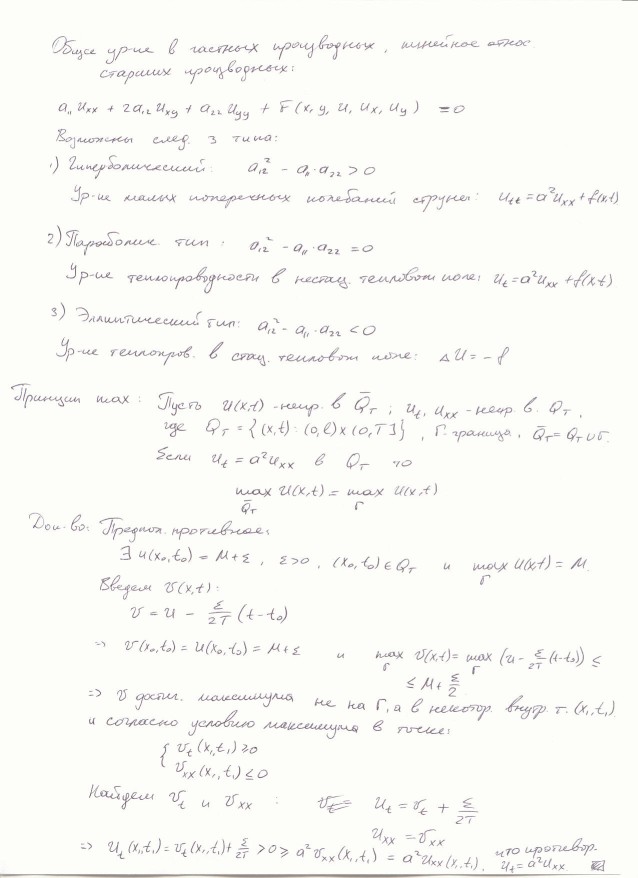 Общее ур-ие в частных производных, линейное относ.
старших производных:
a₁₁ Uxx + 2a₁₂ Uxy + a₂₂ Uyy + F(x, y, u, Ux, Uy) = 0
Возможны след. 3 типа:
1) Гиперболический: a₁₂² - a₁₁·a₂₂ > 0
Ур-ие малых поперечных колебаний струны: Utt = a²Uxx + f(x,t)
2) Параболич. тип: a₁₂² - a₁₁·a₂₂ = 0
Ур-ие теплопроводности в нестац. тепловом поле: Ut = a²Uxx + f(x,t)
3) Эллиптический тип: a₁₂² - a₁₁·a₂₂ < 0
Ур-ие теплопров. в стац. тепловом поле: ΔU = -f
Принцип max: Пусть U(x,t) - непр. в Q̄T; Ut, Uxx - непр. в. QT,
где QT = {(x,t): (0,l)×(0,T]}, Г. граница, Q̄T = QT ∪ Г.
Если Ut = a²Uxx в QT то
max U(x,t) = max U(x,t)
Q̄T Г
Док-во: Предпол. противное:
∃ u(x₀,t₀) = M+ε, ε>0, (x₀,t₀) ∈ QT и max U(x,t) = M.
Г
Введем V(x,t):
V = U - ε/2T (t-t₀)
⇒ V(x₀,t₀) = U(x₀,t₀) = M+ε и max V(x,t) = max (U - ε/2T (t-t₀)) ≤
Г Г
≤ M + ε/2
⇒ V достиг. максимума не на Г, а в некотор. внутр. т. (x₁,t₁)
и согласно условию максимума в точке:
{ Vt(x₁,t₁) ≥ 0
Vxx(x₁,t₁) ≤ 0
Найдем Vt и Vxx : Ut = Vt + ε/2T
Uxx = Vxx
⇒ Ut(x₁,t₁) = Vt(x₁,t₁) + ε/2T > 0 ≥ a²Vxx(x₁,t₁) = a²Uxx(x₁,t₁), что противор.
Ut = a²Uxx